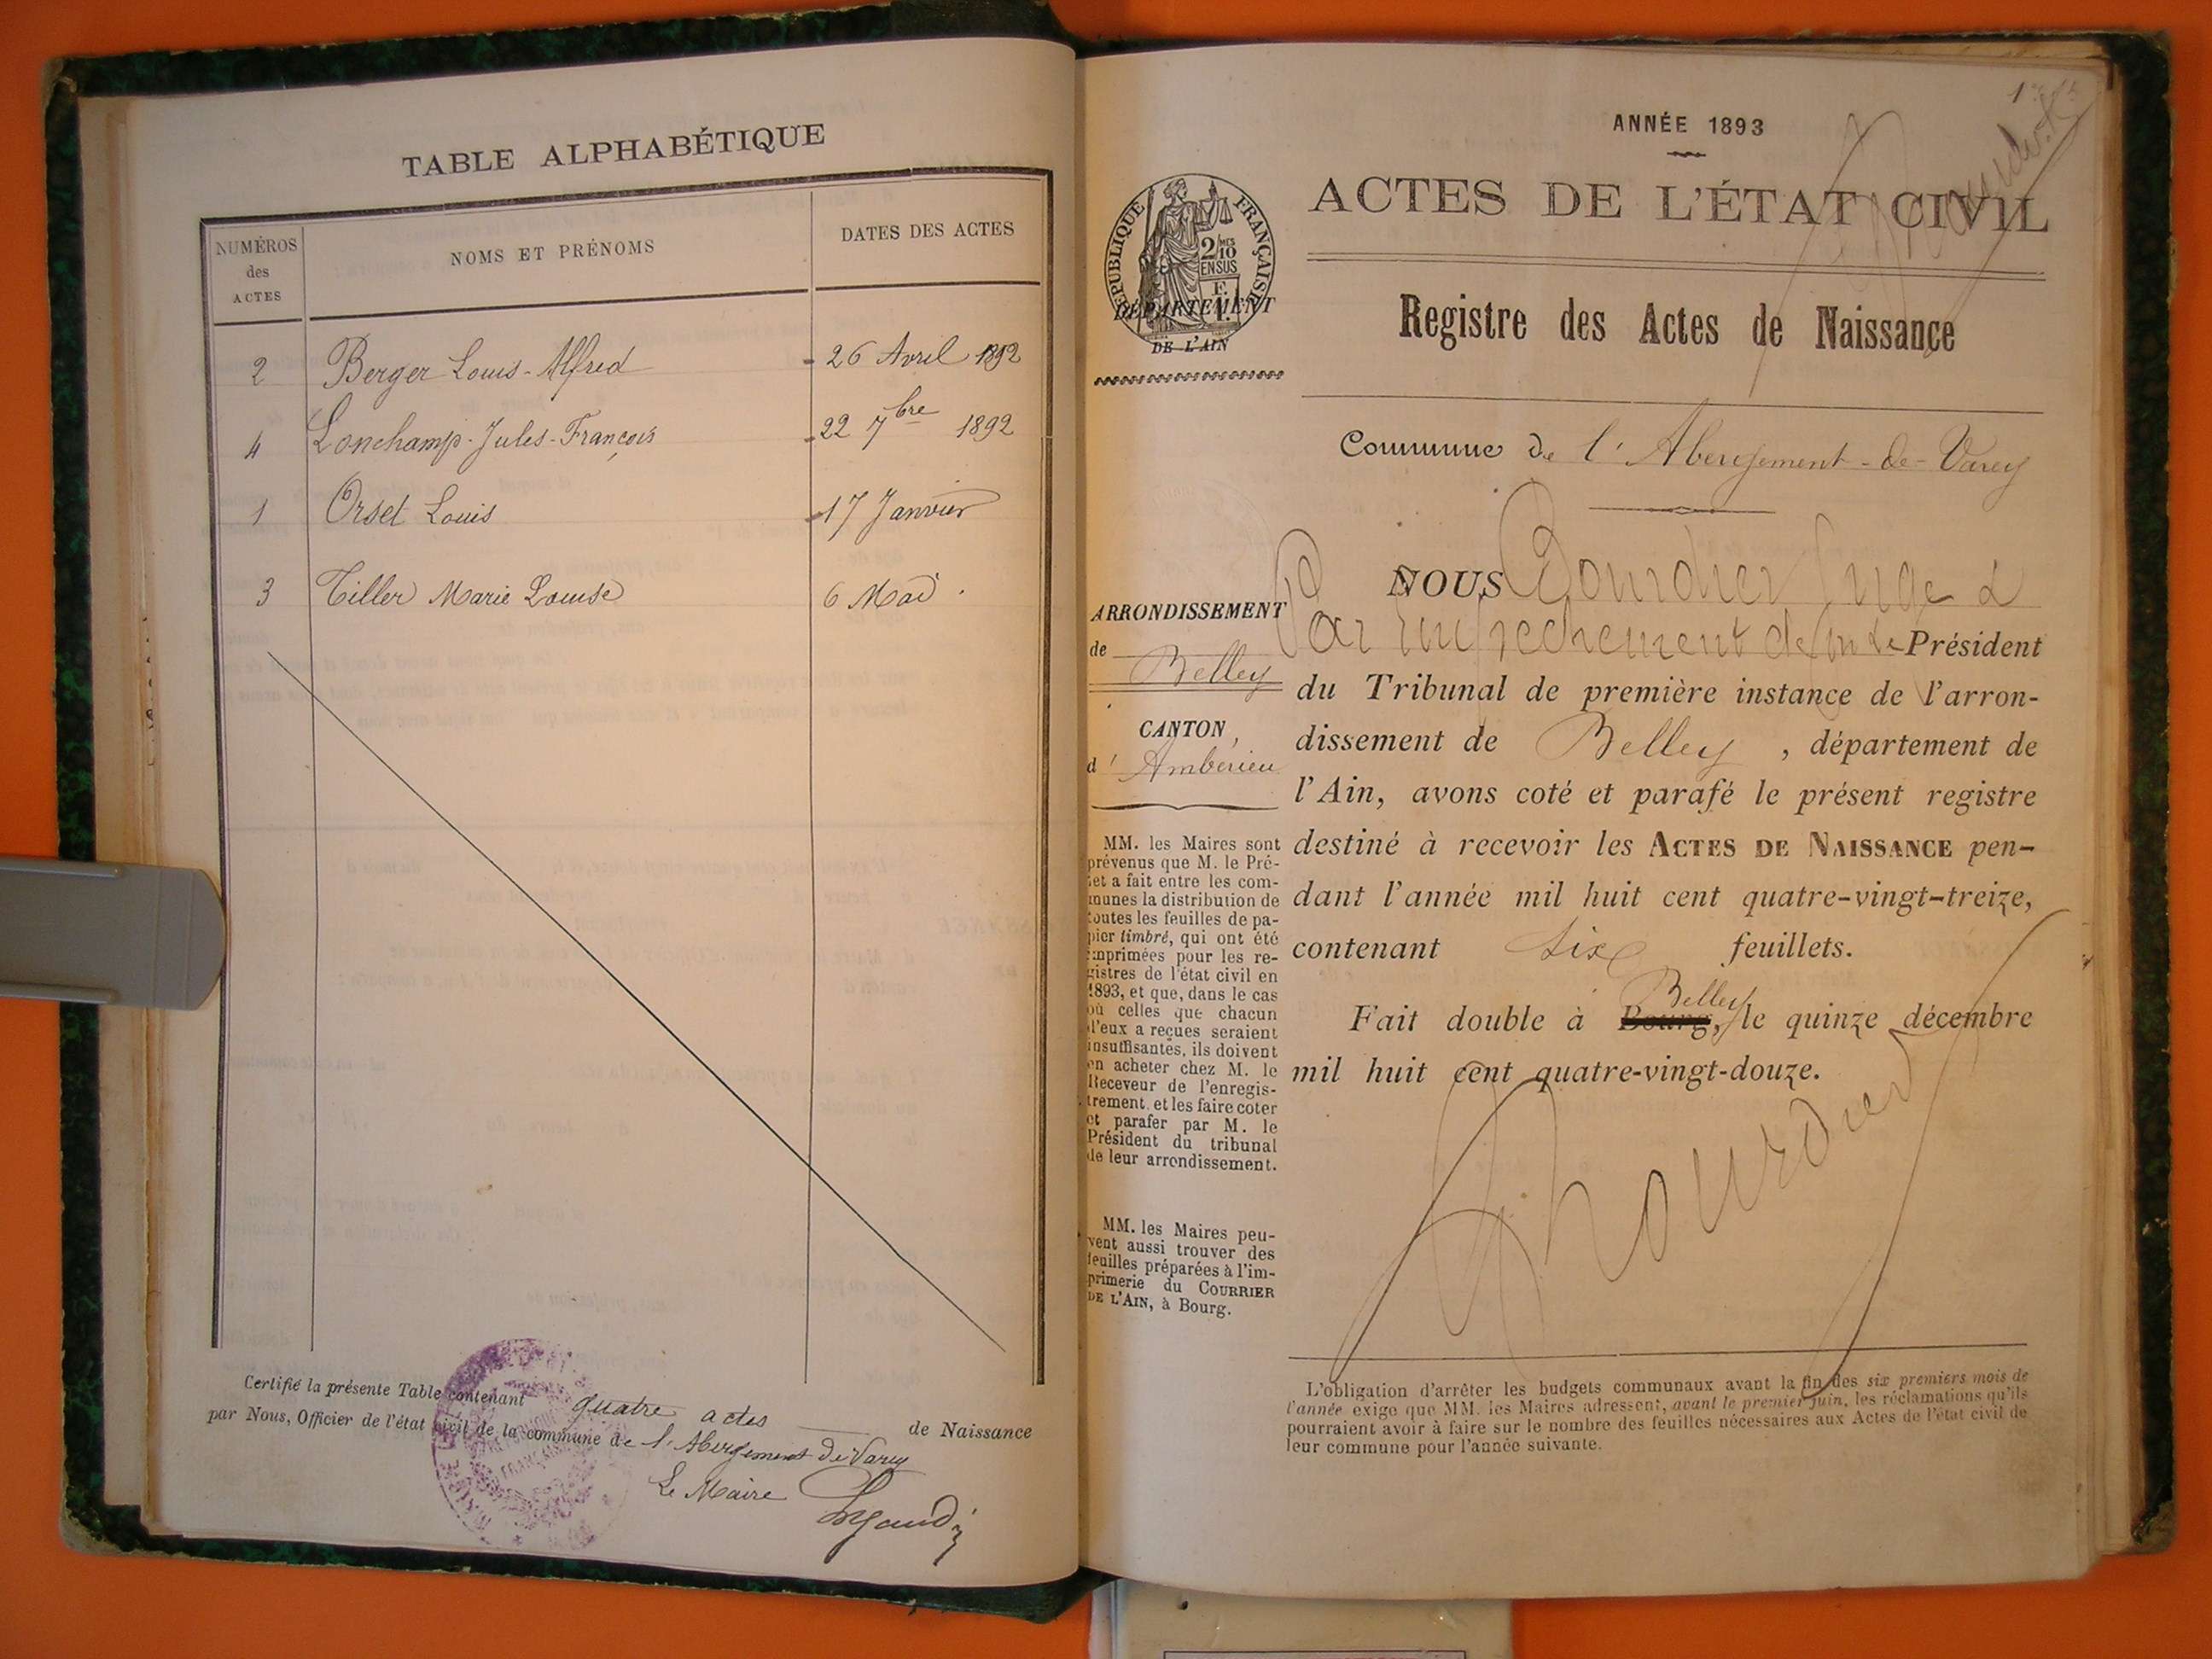 TABLE ALPHABÉTIQUE
NUMÉROS des ACTES
NOMS ET PRÉNOMS
DATES DES ACTES
2 Berger Louis-Alfred 26 Avril 1892
4 Lonchamp-Jules-François 22 7bre 1892
1 Orset Louis 17 Janvier
3 Tiller Marie Louise 6 Mai
Certifié la présente Table contenant quatre actes de Naissance
par Nous, Officier de l'état civil de la commune de l'Abergement de Varey
Le Maire
ANNÉE 1893
ACTES DE L'ÉTAT CIVIL
RÉPUBLIQUE FRANÇAISE
2/10
EN SUS
DÉPARTEMENT
DE L'AIN
Registre des Actes de Naissance
Commune de l'Abergement-de-Varey
ARRONDISSEMENT
de Belley
CANTON
d'Ambérieu
MM. les Maires sont
prévenus que M. le Pré-
fet a fait entre les com-
munes la distribution de
toutes les feuilles de pa-
pier timbré, qui ont été
imprimées pour les re-
gistres de l'état civil en
1893, et que, dans le cas
où celles que chacun
d'eux a reçues seraient
insuffisantes, ils doivent
en acheter chez M. le
Receveur de l'enregis-
trement, et les faire coter
et parafer par M. le
Président du tribunal
de leur arrondissement.
MM. les Maires peu-
vent aussi trouver des
feuilles préparées à l'im-
primerie du COURRIER
DE L'AIN, à Bourg.
NOUS Bourdier Juge
Par empechement de Président
du Tribunal de première instance de l'arron-
dissement de Belley, département de
l'Ain, avons coté et parafé le présent registre
destiné à recevoir les ACTES DE NAISSANCE pen-
dant l'année mil huit cent quatre-vingt-treize,
contenant six feuillets.
Belley
Fait double à Bourg, le quinze décembre
mil huit cent quatre-vingt-douze.
Bourdier
L'obligation d'arrêter les budgets communaux avant la fin des six premiers mois de
l'année exige que MM. les Maires adressent, avant le premier juin, les réclamations qu'ils
pourraient avoir à faire sur le nombre des feuilles nécessaires aux Actes de l'état civil de
leur commune pour l'année suivante.